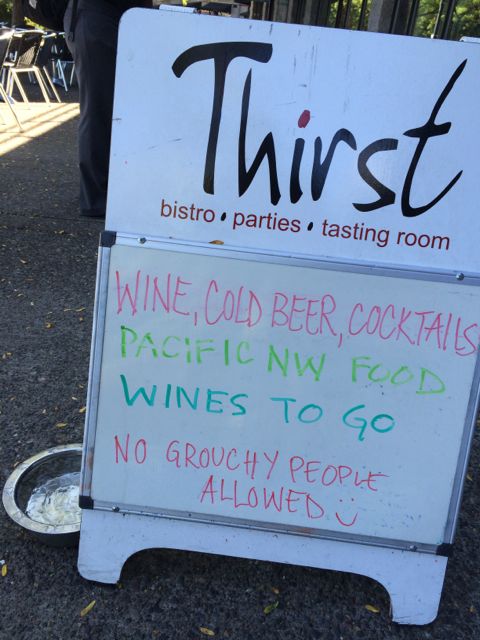 Thirst
bistro • parties • tasting room
WINE, COLD BEER, COCKTAILS
PACIFIC NW FOOD
WINES TO GO
NO GROUCHY PEOPLE
ALLOWED :)